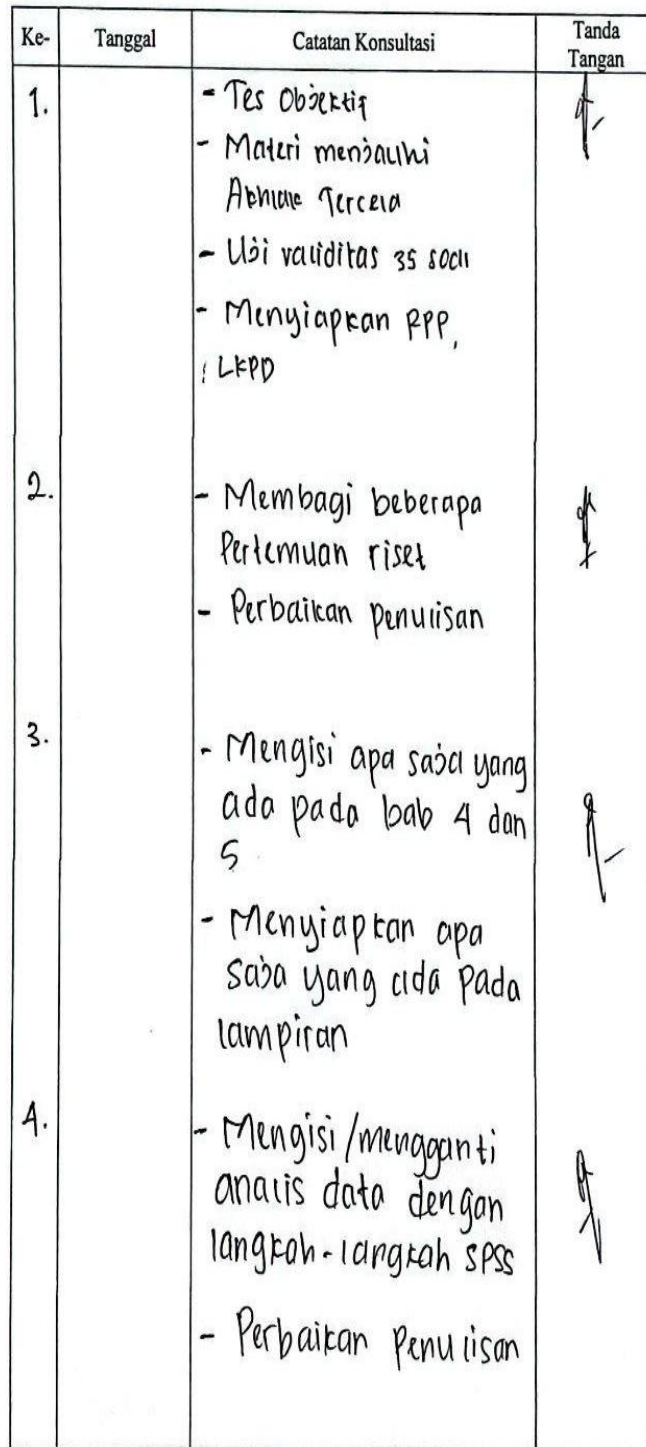 Ke- Tanggal Catatan Konsultasi Tanda Tangan
1. - Tes Objektif
- Materi menjauhi
Akhlak Tercela
- Uji validitas 35 soal
- Menyiapkan RPP,
LKPD
2. - Membagi beberapa
Pertemuan riset
- Perbaikan penulisan
3. - Mengisi apa saja yang
ada pada bab 4 dan
5
- Menyiapkan apa
saja yang ada pada
lampiran
4. - Mengisi/mengganti
analis data dengan
langkah-langkah SPSS
- Perbaikan Penulisan